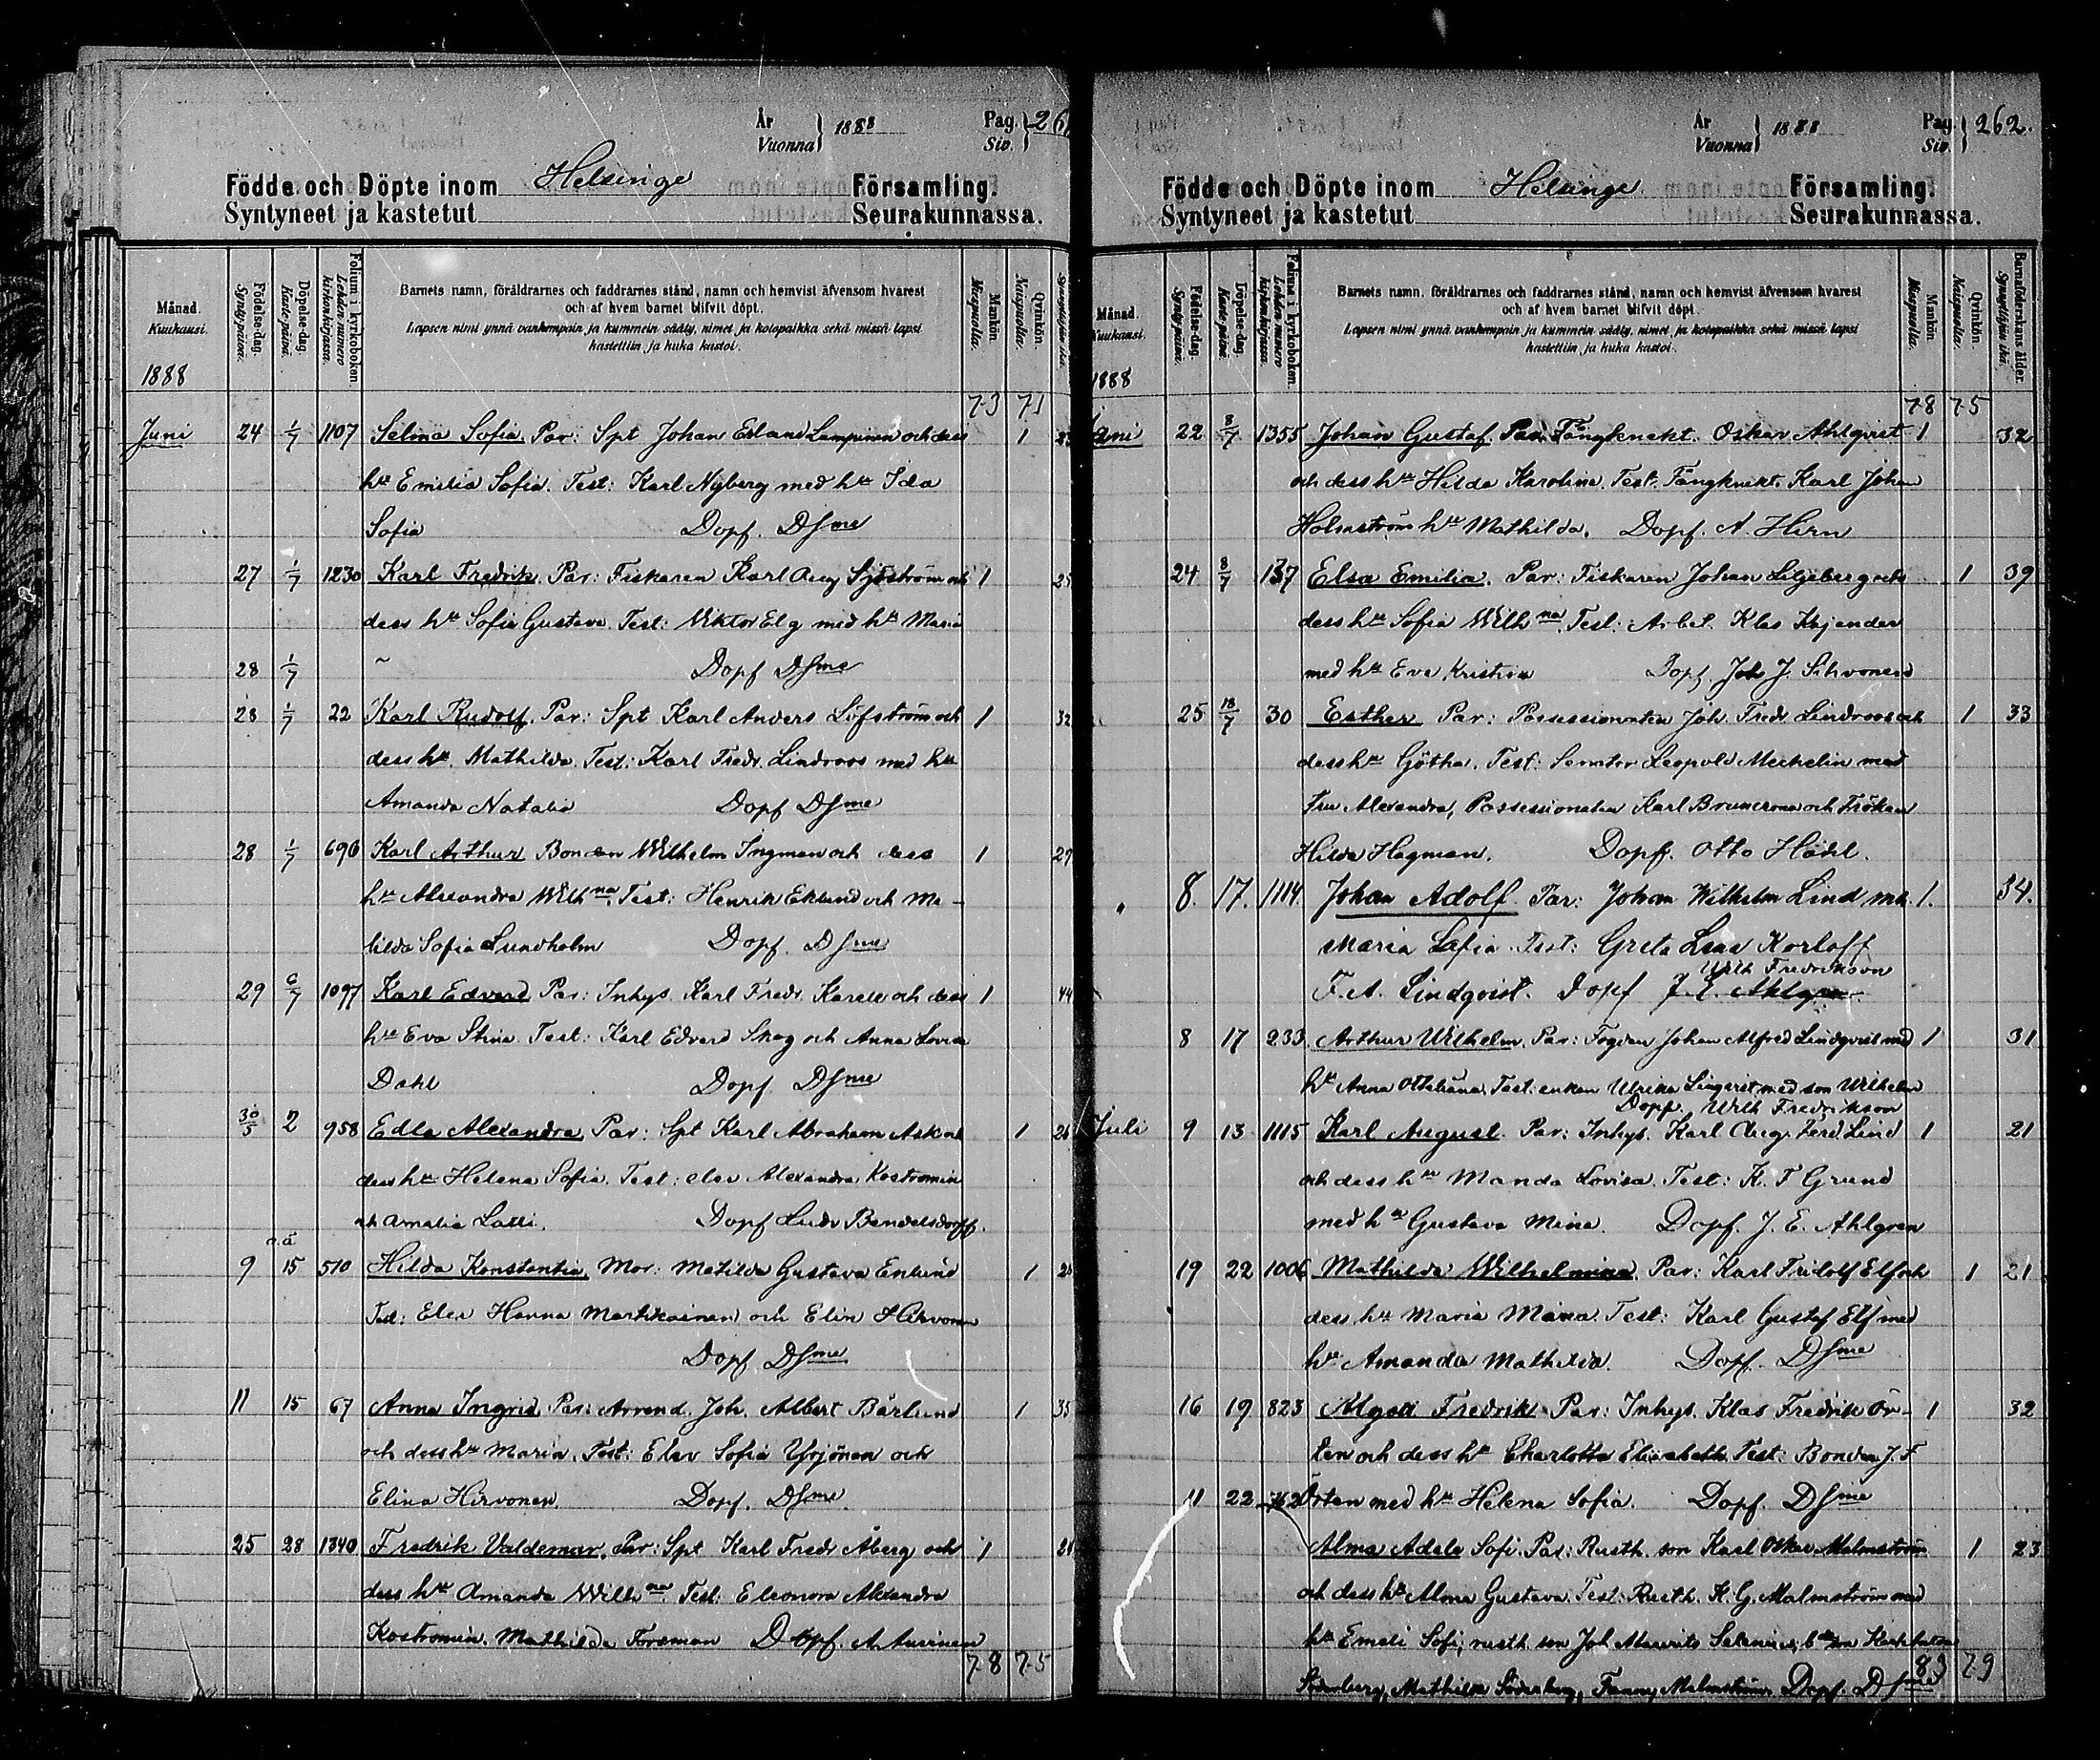 År
Vuonna } 1888
Pag.
Siv. } 261
Födde och Döpte inom Helsinge Församling.
Syntyneet ja kastetut Seurakunnassa.
Månad. Kuukausi.
Födelse-dag. Syntypäivä.
Döpelse-dag. Kastepäivä.
Folium i kyrkoboken. Lehden numero kirkonkirjassa.
Barnets namn, föräldrarnes och faddrarnes stånd, namn och hemvist äfvensom hvarest
och af hvem barnet blifvit döpt.
Lapsen nimi ynnä vanhempain ja kummein sääty, nimet ja kotopaikka sekä missä lapsi
kastettiin ja kuka kastoi.
Mankön. Miespuolia.
Qvinkön. Naispuolia.
1888
73 71
Juni 24 1/7 1107 Selma Sofia. Par: Spt Johan Erland Lampinen och dess 1
hu Emilia Sofia. Test: Karl Nyberg med hu Ida
Sofia Dopf. DSme
27 1/7 1230 Karl Fredrik. Par: Fiskaren Karl Aug Sjöström och 1 25
dess hu Sofia Gustava. Test: Viktor Elg med hu Maria
28 1/7 Dopf DSme
28 1/7 22 Karl Rudolf. Par: Spt Karl Anders Löfström och 1 32
dess hu Mathilda. Test: Karl Fredr. Lindroos med hu
Amanda Natalia Dopf DSme
28 1/7 696 Karl Arthur Bonden Wilhelm Ingman och dess 1 29
hu Alexandra Wilhna. Test: Henrik Eklund och Ma-
tilda Sofia Lundholm Dopf. DSme
29 6/7 1097 Karl Edvard Par: Inhys. Karl Fredr. Karell och dess 1 44
hu Eva Stina. Test: Karl Edvard Skog och Anna Lovisa
Dahl Dopf DSme
30/5 2 958 Edla Alexandra, Par: Spt Karl Abraham Ask och 1 26
dess hu Helena Sofia. Test: elev Alexandra Kostromin
och Amalia Latti. Dopf Ludv Bendelsdorff.
9 15 510 Hilda Konstantia, Mor: Matilda Gustava Enlund 1
Test: Elev Hanna Martikainen och Elin Hirvonen
Dopf DSme
11 15 67 Anna Ingrid Par: Arrend. Joh. Albert Bärlund 1 35
och dess hu Maria. Test: Elev Sofia Yrjönen och
Elina Hirvonen. Dopf. DSme
25 28 1340 Fredrik Valdemar. Par: Spt Karl Fredr Åberg och 1
dess hu Amanda Wilhna. Test: Eleonora Alexandra
Kostromin. Mathilda Forsman Dopf. A. Auvinen
78 75
År
Vuonna } 1888
Pag.
Siv. } 262.
Födde och Döpte inom Helsinge Församling.
Syntyneet ja kastetut Seurakunnassa.
Månad. Kuukausi.
Födelse-dag. Syntypäivä.
Döpelse-dag. Kastepäivä.
Folium i kyrkoboken. Lehden numero kirkonkirjassa.
Barnets namn, föräldrarnes och faddrarnes stånd, namn och hemvist äfvensom hvarest
och af hvem barnet blifvit döpt.
Lapsen nimi ynnä vanhempain ja kummein sääty, nimet ja kotopaikka sekä missä lapsi
kastettiin ja kuka kastoi.
Mankön. Miespuolia.
Qvinkön. Naispuolia.
Barnaföderskans ålder. Synnyttäjän ikä.
1888
78 75
Juni 22 8/7 1355 Johan Gustaf. Par: Fångknekt. Oskar Ahlqvist 1 32
och dess hu Hilda Karolina. Test. Fångknekt. Karl Johan
Holmström hu Mathilda. Dopf. A. Hirn
24 8/7 137 Elsa Emilia. Par: Fiskaren Johan Liljeberg och 1 39
dess hu Sofia Wilhna. Test: Arbet. Klas Kajander
med hu Eva Kristina Dopf. Joh J. Sihvonen
25 18/7 30 Esther Par: Possessionaten Joh. Fredr. Lindroos och 1 33
dess hu Götha. Test: Senator Leopold Mechelin med
Fru Alexandra, Possessionaten Karl Bruncrona och Fröken
Hilda Hagman. Dopf. Otto Hödl.
8. 17. 1114. Johan Adolf. Par: Johan Wilhelm Lind m.h. 1. 34.
Maria Sofia. Test: Greta Lisa Korloff
Wilh Fredrikson
F. A. Lindqvist. Dopf J. E. Ahlgren
8 17 233 Arthur Wilhelm. Par: Fogden Johan Alfred Lindqvist med 1 31
hu Anna Ottiliana. Test: enkan Ulrika Lingvist med son Wilhelm
Dopf. Wilh Fredrikson
Juli 9 13 1115 Karl August. Par: Inhys. Karl Aug. Ferd. Lind 1 21
och dess hu Manda Lovisa. Test: K. F Grund
med hu Gustava Mina. Dopf. J. E. Ahlgren
19 22 1006 Mathilda Wilhelmina. Par: Karl Fridolf Elf och 1 21
dess hu Maria Mina. Test: Karl Gustaf Elf med
hu Amanda Mathilda. Dopf. DSme
16 19 823 Algott Fredrik Par: Inhys. Klas Fredrik Ör- 1 32
ten och dess hu Charlotta Elisabeth. Test: Bonden J. F
11 22 762 Örten med hu Helena Sofia. Dopf. DSme
Alma Adele Sofi. Par: Rusth. son Karl Oskar Malmström 1 23
och dess hu Alma Gustava. Test: Rusth. K. G. Malmström med
hu Emeli Sofi; rusth son Joh Mauritz Selenius, son Karl Anton
Söderberg, Mathilda Söderberg, Fanny Malmström. Dopf. DSme
83 79